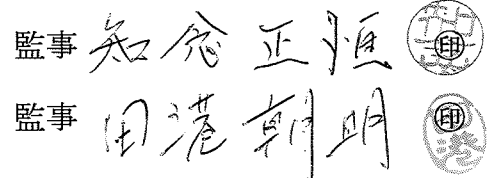 監事 知念正 ㊞
監事 田港朝明 ㊞